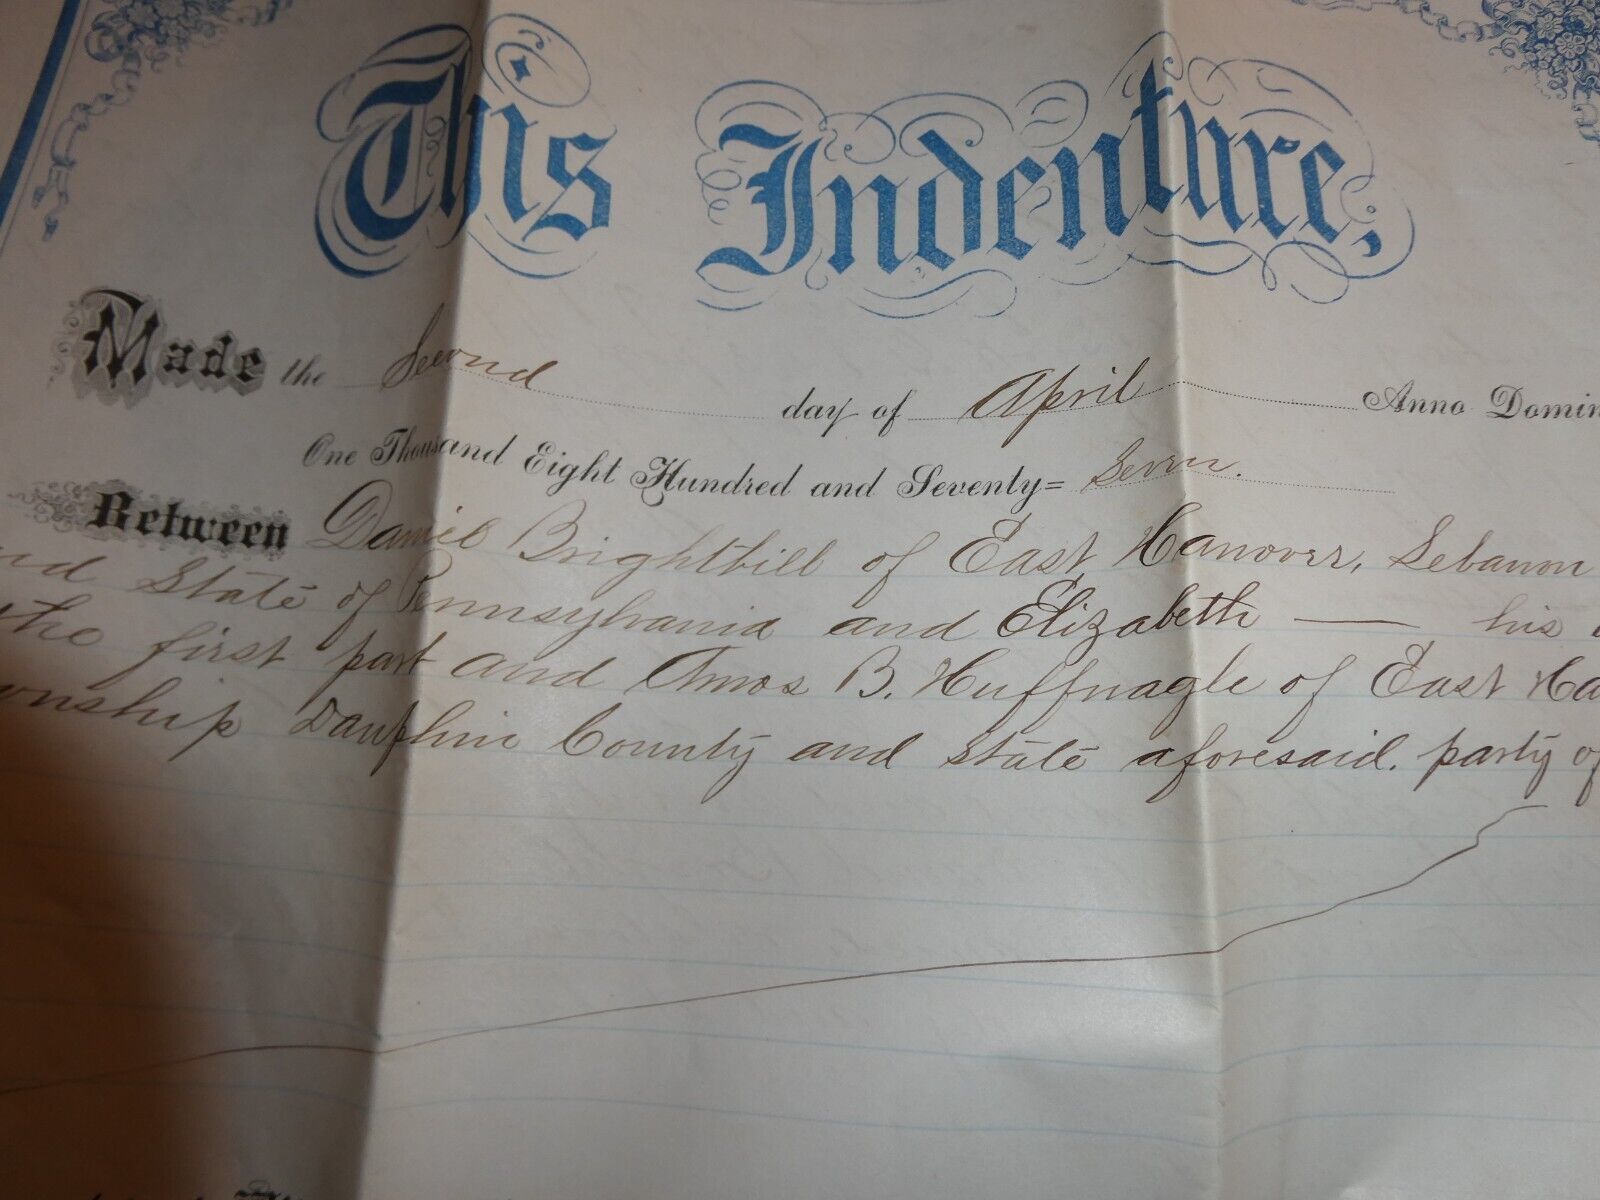 This Indenture;
Made the Second day of April Anno Domin
One Thousand Eight Hundred and Seventy= Seven.
Between Daniel Brightbill of East Hanover, Lebanon
nd State of Pennsylvania and Elizabeth — his
the first part and Amos B. Huffnagle of East Ha
wnship Dauphin County and State aforesaid. party of